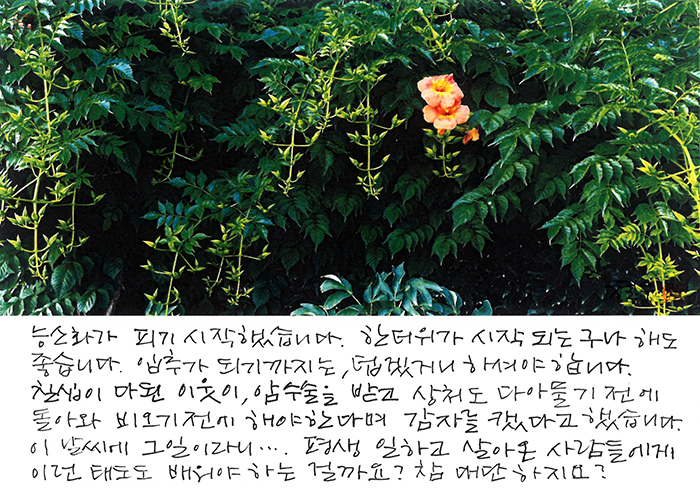 능소화가 피기 시작했습니다. 한더위가 시작 되는구나 해도
좋습니다. 입추가 되기까지는, 덥겠거니 하셔야 합니다.
칠십이 다된 이웃이, 암수술을 받고 상처도 다아물기 전에
돌아와 비오기전에 해야한다며 감자를 캤다고 했습니다.
이 날씨에 그일이라니…. 평생 일하고 살아온 사람들에게
이런 태도도 배워야 하는 걸까요? 참 대단 하지요?